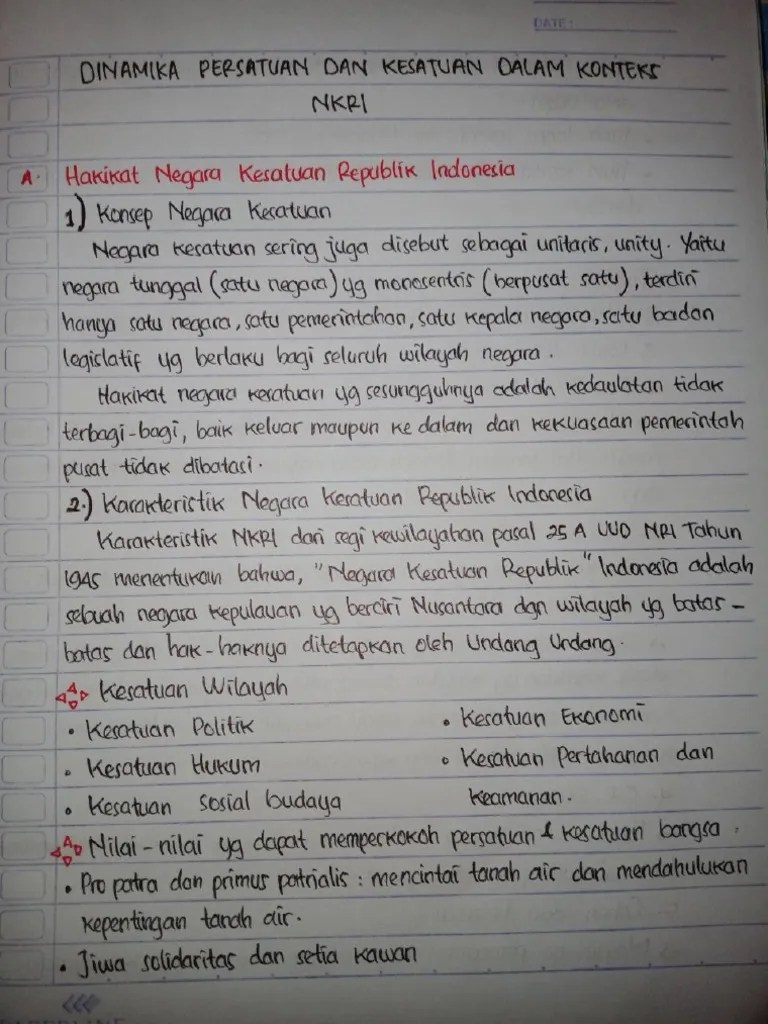 DATE:
DINAMIKA PERSATUAN DAN KESATUAN DALAM KONTEKS
NKRI
A. Hakikat Negara Kesatuan Republik Indonesia
1) Konsep Negara Kesatuan
Negara kesatuan sering juga disebut sebagai unitaris, unity. Yaitu
negara tunggal (satu negara) yg monosentris (berpusat satu), terdiri
hanya satu negara, satu pemerintahan, satu kepala negara, satu badan
legislatif yg berlaku bagi seluruh wilayah negara.
Hakikat negara kesatuan yg sesungguhnya adalah kedaulatan tidak
terbagi-bagi, baik keluar maupun ke dalam dan kekuasaan pemerintah
pusat tidak dibatasi.
2.) Karakteristik Negara Kesatuan Republik Indonesia
Karakteristik NKRI dari segi kewilayahan pasal 25 A UUD NRI Tahun
1945 menentukan bahwa, "Negara Kesatuan Republik" Indonesia adalah
sebuah negara kepulauan yg berciri Nusantara dgn wilayah yg batas-
batas dan hak-haknya ditetapkan oleh Undang Undang.
Kesatuan Wilayah
• Kesatuan Politik • Kesatuan Ekonomi
• Kesatuan Hukum • Kesatuan Pertahanan dan
• Kesatuan sosial budaya Keamanan.
Nilai-nilai yg dapat memperkokoh persatuan & kesatuan bangsa.
• Pro patra dan primus patrialis : mencintai tanah air dan mendahulukan
kepentingan tanah air.
• Jiwa solidaritas dan setia kawan